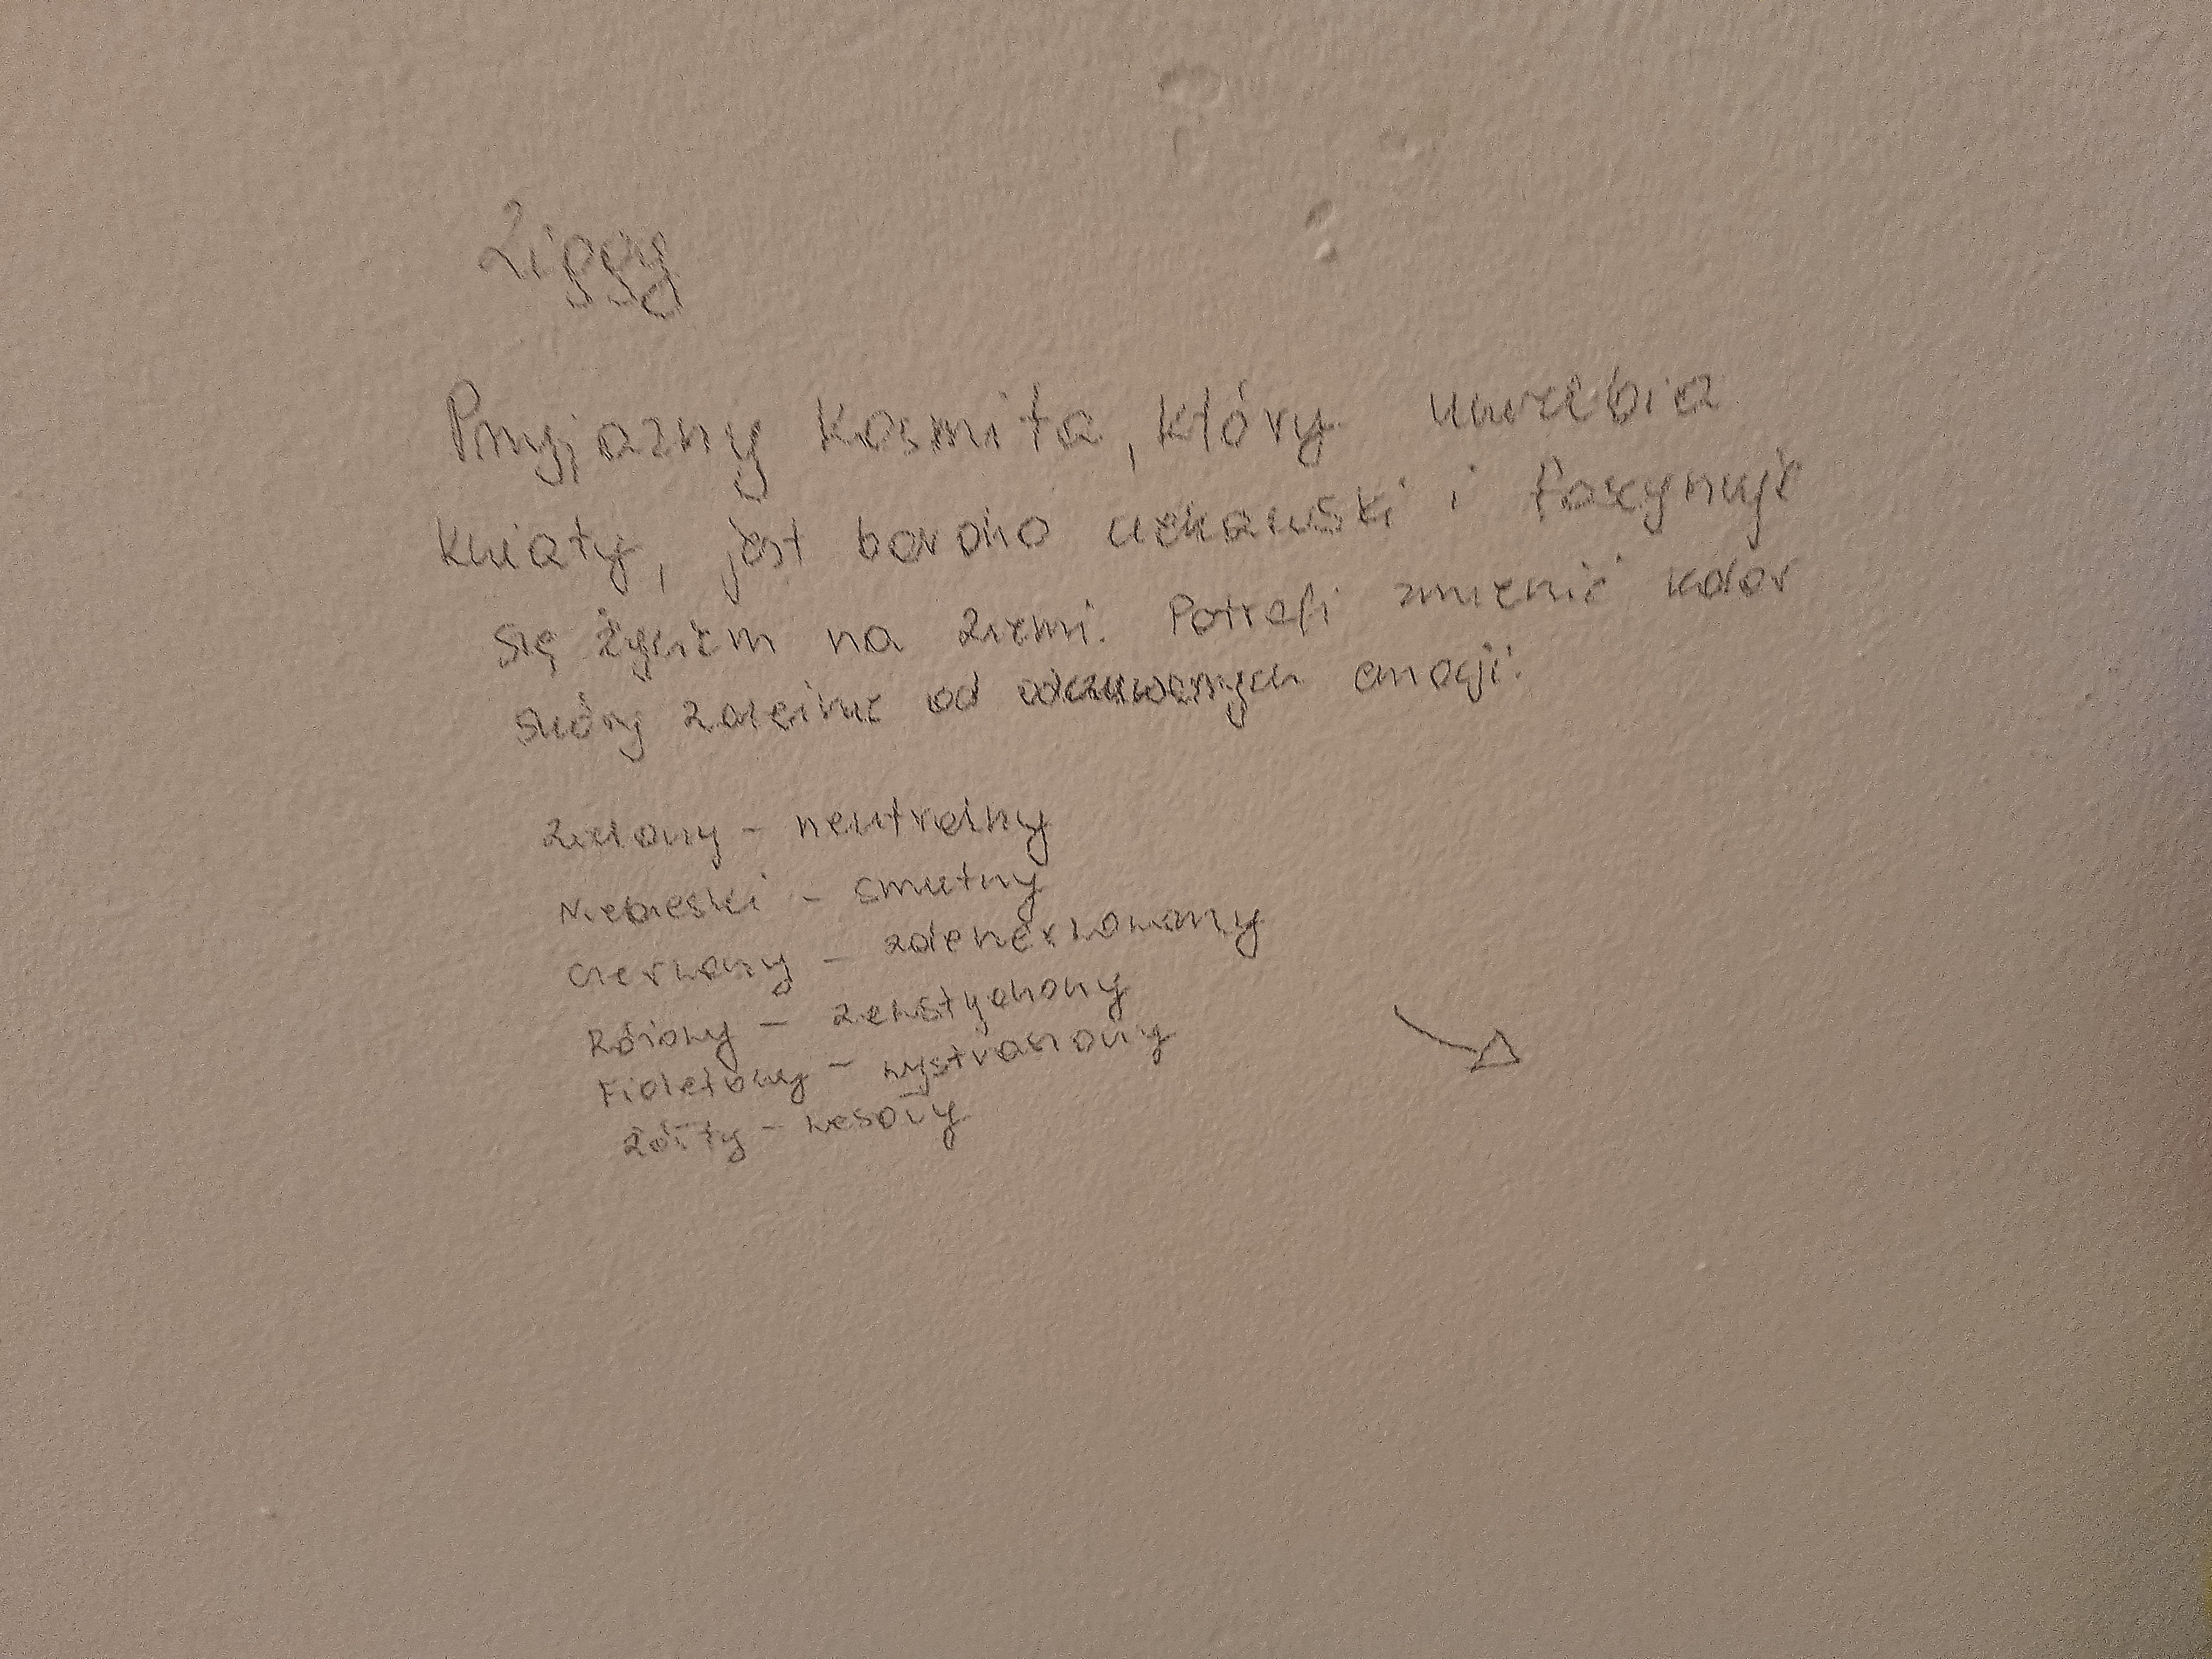 Zippy
Przyjazny kosmita, który uwielbia
kwiaty, jest bardzo ciekawski i fascynuje
się życiem na Ziemi. Potrafi zmienić kolor
skóry zależnie od odczuwanych emocji.
Zielony - neutralny
Niebieski - smutny
Czerwony - zdenerwowany
Różowy - zawstydzony
Fioletowy - wystraszony
Żółty - wesoły